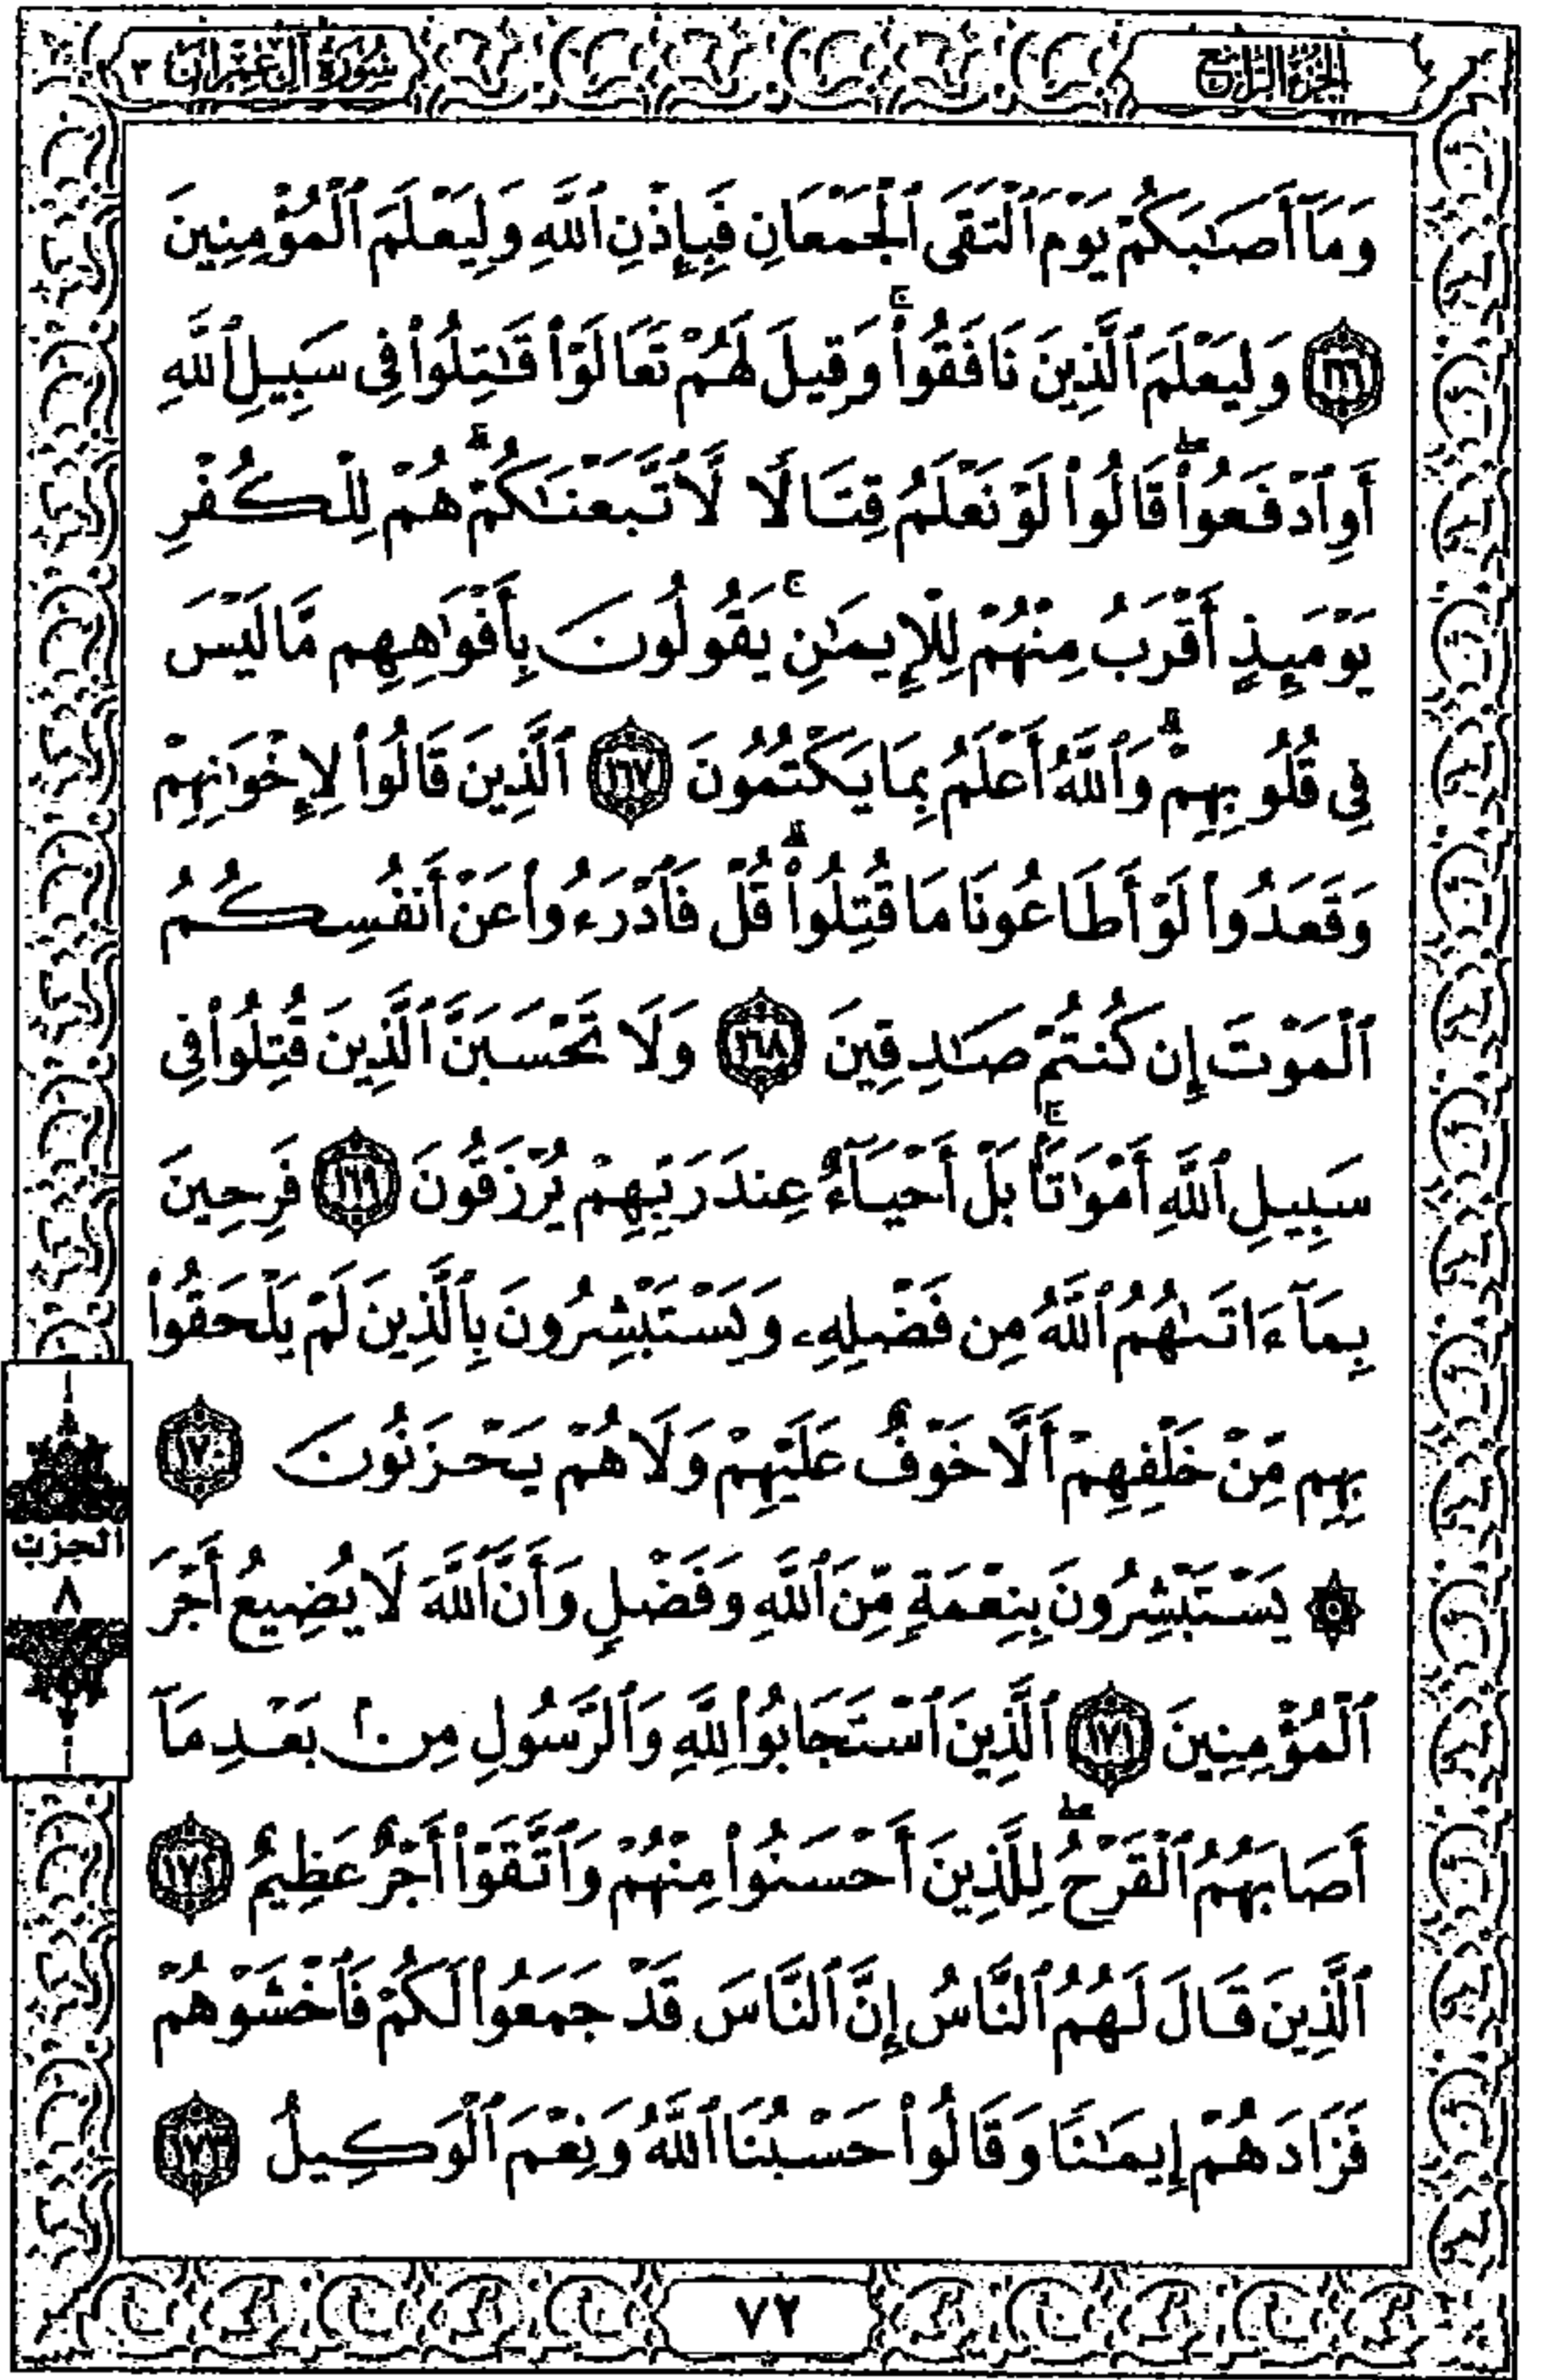 الجزء الرابع
سورة آل عمران ٣
وَمَآ أَصَٰبَكُمْ يَوْمَ ٱلْتَقَى ٱلْجَمْعَانِ فَبِإِذْنِ ٱللَّهِ وَلِيَعْلَمَ ٱلْمُؤْمِنِينَ
١٦٦ وَلِيَعْلَمَ ٱلَّذِينَ نَافَقُوا۟ ۚ وَقِيلَ لَهُمْ تَعَالَوْا۟ قَٰتِلُوا۟ فِى سَبِيلِ ٱللَّهِ
أَوِ ٱدْفَعُوا۟ ۖ قَالُوا۟ لَوْ نَعْلَمُ قِتَالًا لَّٱتَّبَعْنَٰكُمْ ۗ هُمْ لِلْكُفْرِ
يَوْمَئِذٍ أَقْرَبُ مِنْهُمْ لِلْإِيمَٰنِ ۚ يَقُولُونَ بِأَفْوَٰهِهِم مَّا لَيْسَ
فِى قُلُوبِهِمْ ۗ وَٱللَّهُ أَعْلَمُ بِمَا يَكْتُمُونَ ١٦٧ ٱلَّذِينَ قَالُوا۟ لِإِخْوَٰنِهِمْ
وَقَعَدُوا۟ لَوْ أَطَاعُونَا مَا قُتِلُوا۟ ۗ قُلْ فَٱدْرَءُوا۟ عَنْ أَنفُسِكُمُ
ٱلْمَوْتَ إِن كُنتُمْ صَٰدِقِينَ ١٦٨ وَلَا تَحْسَبَنَّ ٱلَّذِينَ قُتِلُوا۟ فِى
سَبِيلِ ٱللَّهِ أَمْوَٰتًۢا ۚ بَلْ أَحْيَآءٌ عِندَ رَبِّهِمْ يُرْزَقُونَ ١٦٩ فَرِحِينَ
بِمَآ ءَاتَىٰهُمُ ٱللَّهُ مِن فَضْلِهِۦ وَيَسْتَبْشِرُونَ بِٱلَّذِينَ لَمْ يَلْحَقُوا۟
بِهِم مِّنْ خَلْفِهِمْ أَلَّا خَوْفٌ عَلَيْهِمْ وَلَا هُمْ يَحْزَنُونَ ١٧٠
الحزب
٨
۞ يَسْتَبْشِرُونَ بِنِعْمَةٍ مِّنَ ٱللَّهِ وَفَضْلٍ وَأَنَّ ٱللَّهَ لَا يُضِيعُ أَجْرَ
ٱلْمُؤْمِنِينَ ١٧١ ٱلَّذِينَ ٱسْتَجَابُوا۟ لِلَّهِ وَٱلرَّسُولِ مِنۢ بَعْدِ مَآ
أَصَابَهُمُ ٱلْقَرْحُ ۖ لِلَّذِينَ أَحْسَنُوا۟ مِنْهُمْ وَٱتَّقَوْا۟ أَجْرٌ عَظِيمٌ ١٧٢
ٱلَّذِينَ قَالَ لَهُمُ ٱلنَّاسُ إِنَّ ٱلنَّاسَ قَدْ جَمَعُوا۟ لَكُمْ فَٱخْشَوْهُمْ
فَزَادَهُمْ إِيمَٰنًا وَقَالُوا۟ حَسْبُنَا ٱللَّهُ وَنِعْمَ ٱلْوَكِيلُ ١٧٣
٧٢